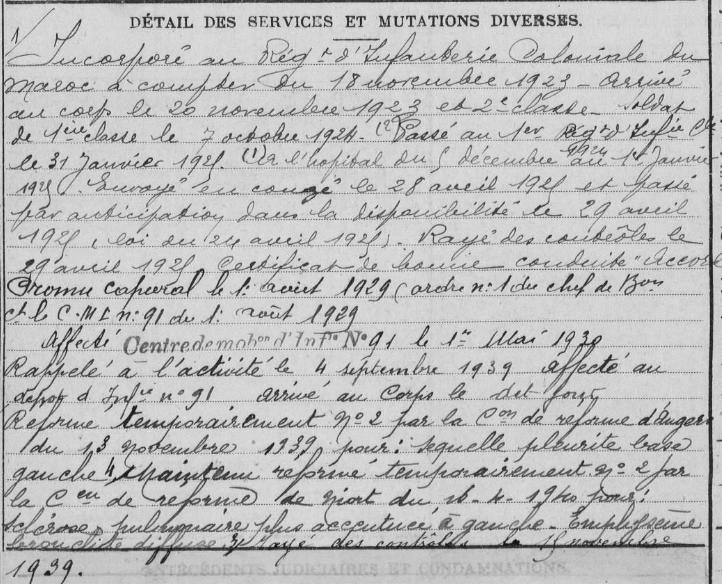 DÉTAIL DES SERVICES ET MUTATIONS DIVERSES.
1/
Incorporé au Rég.t d'Infanterie Coloniale du
Maroc à compter du 18 novembre 1923 - Arrivé
au corps le 20 novembre 1923 et 2e classe - Soldat
de 1ère classe le 7 octobre 1924. (2 Passé au 1er Rég.t d'Inf.ie C.le
le 31 Janvier 1925. (1) à l'hopital du 5 décembre 1924 au 1er Janvier
1925. Envoyé en congé le 28 avril 1925 et passé
par anticipation dans la disponibilité le 29 avril
1925 (loi du 24 avril 1925). Rayé des contrôles le
29 avril 1925 Certificat de bonne conduite "Accordé
Promu caporal le 1: août 1929 (ordre n: 1 du chef de Bon
Ct le C.M.I. n: 91 du 1: août 1929
Affecté Centre de mobon d'Infie No 91 le 1er Mai 1930
Rappelé à l'activité le 4 septembre 1939 Affecté au
depot d'Infie no 91 arrivé au Corps le dit jour
Reformé temporairement No 2 par la Con de reforme d'Angers
du 13 novembre 1939 pour: sequelle pleurite base
gauche. 4 Maintenu reformé temporairement No 2 par
la Con de reforme de Niort du 16-4-1940 pour:
sclérose pulmonaire plus accentuée à gauche - Emphysème
bronchite diffuse 3/ Rayé des contrôles le 15 novembre
1939.
ANTÉCÉDENTS JUDICIAIRES ET CONDAMNATIONS.